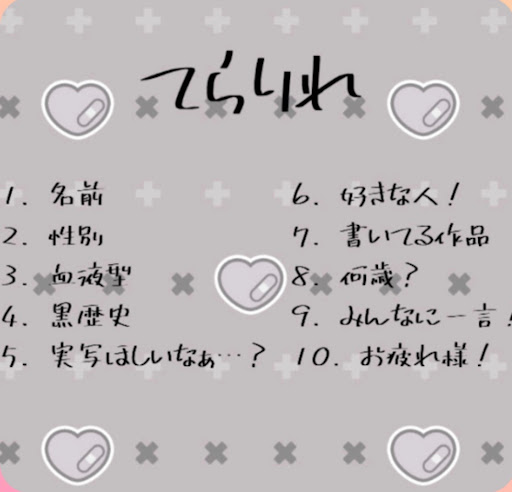 てらりれ
1. 名前
2. 性別
3. 血液型
4. 黒歴史
5. 実写ほしいなぁ…?
6. 好きな人!
7. 書いてる作品
8. 何歳?
9. みんなに一言!
10. お疲れ様!